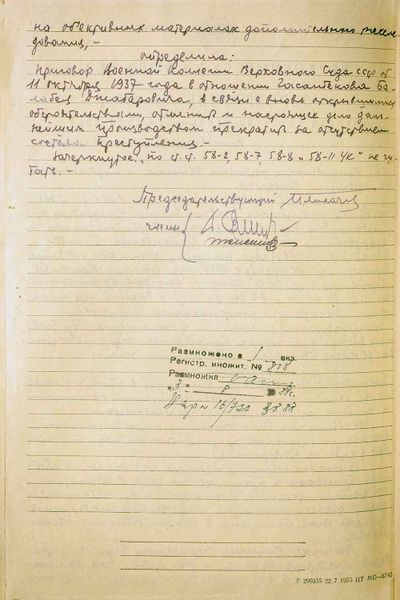 на объективных материалах дополнительного рассле-
дования, -
определила:
Приговор Военной Коллегии Верховного Суда СССР от
11 октября 1937 года в отношении Гасанбекова Ба-
Джабаровича, в связи с вновь открывшимися
обстоятельствами, отменить и настоящее дело даль-
нейшим производством прекратить за отсутствием
состава преступления. -
Зачеркнутое "по ст.ст. 58-2, 58-7, 58-8 и 58-11 УК" не чи-
тать. -
Председательствующий
члены
Размножено в 1 экз.
Регистр. множит. №
Размножил
Г 299355 22.7 1955 ЦТ МО-6743